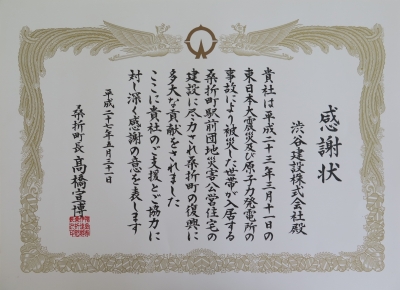 感謝状
渋谷建設株式会社殿
貴社は平成二十三年三月十一日の
東日本大震災及び原子力発電所の
事故により被災した世帯が入居する
桑折町駅前団地災害公営住宅の
建設に尽力され桑折町の復興に
多大な貢献をされました
ここに貴社のご支援とご協力に
対し深く感謝の意を表します
平成二十七年五月二十一日
桑折町長 髙橋宣博